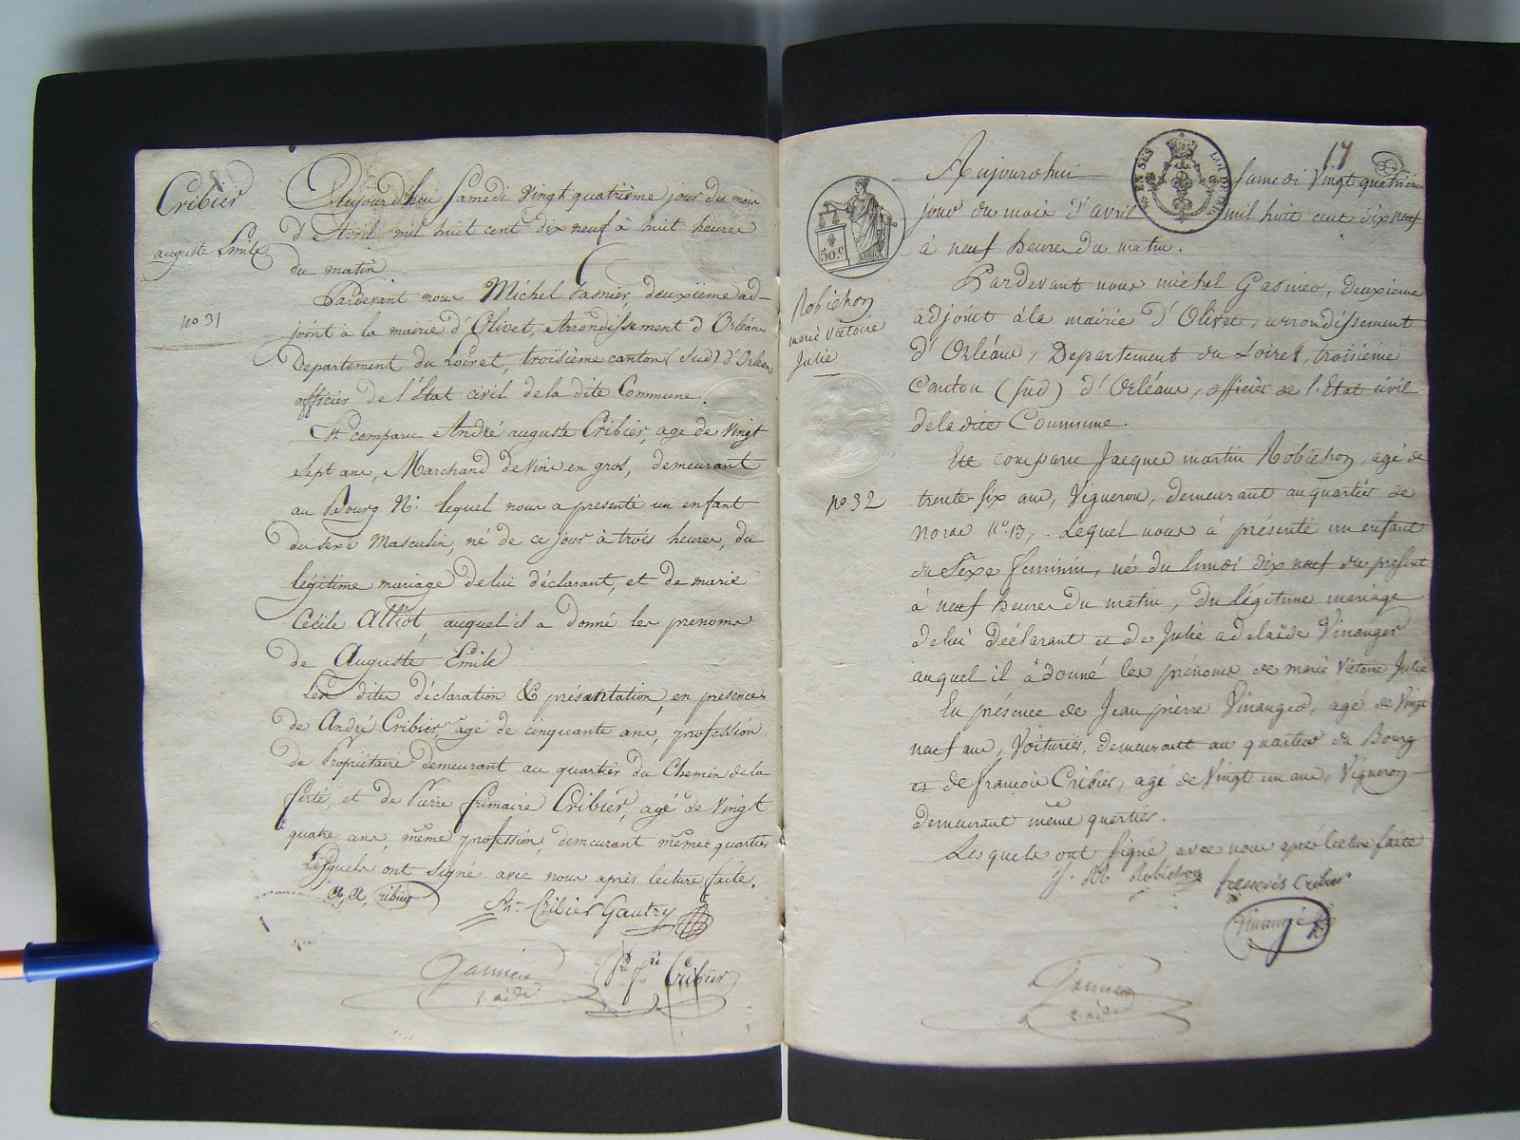 Cribier
auguste Emile
no 31
Aujourd'hui Samedi Vingt quatrième jour du mois
d'Avril mil huit cent dix neuf à huit heures
du matin
Pardevant nous Michel Gasnier, deuxième ad-
joint à la mairie d'Olivet, Arrondissement d'Orléans
Departement du Loiret, troisième canton (Sud) d'Orléans
officier de l'Etat civil de la dite Commune.
Est comparu André auguste Cribier, age de Vingt
Sept ans, Marchand de Vin en gros, demeurant
au Bourg No: lequel nous a presenté un enfant
du sexe Masculin, né de ce jour à trois heures, du
légitime mariage de lui déclarant, et de marie
Cécile Alliot auquel il a donné les prénoms
de Auguste Emile
Les dites déclaration & présantation, en presence
de André Cribier, agé de cinquante ans, profession
de Propriétaire demeurant au quartier du Chemin de la
ferté, et de Pierre frimaire Cribier, agé de Vingt
quatre ans, même profession, demeurant même quartier
Lesquels ont signé avec nous après lecture faite.
A, A, Cribier
An. Cribier Gautry
Gasnier
Pre fre Cribier
17
Aujourdhui Samedi Vingt quatrième
jour du mois d'avril mil huit cent dix neuf
à neuf heures du matin.
50 c
Robichon
marie Victoire
Julie
no 32
Pardevant nous michel Gasnier, deuxieme
adjoint à la mairie d'Olivet, arrondissement
d'Orléans, Departement du Loiret, troisième
Canton (Sud) d'Orléans, officier de l'Etat civil
de la dite Commune.
Est comparu Jacques martin Robichon, agé de
trente-six ans, Vigneron, demeurant au quartier de
no 13, Lequel nous à présenté un enfant
du Sexe feminin, né du lundi dix neuf du présent
à neuf heures du matin, du légitime mariage
de lui Déclarant et de Julie adelaïde Vinauger
auquel il à donné les prénoms de marie Victoire Julie
En présence de Jean pierre Vinauger, agé de Vingt
neuf ans, Voiturier, demeurant au quartier du Bourg
et de françois Cribier, agé de Vingt un ans, Vigneron
demeurant même quartier.
Lesquels ont signé avec nous après lecture faite
J. M. Robichon francois Cribier
Vinauger
Gasnier